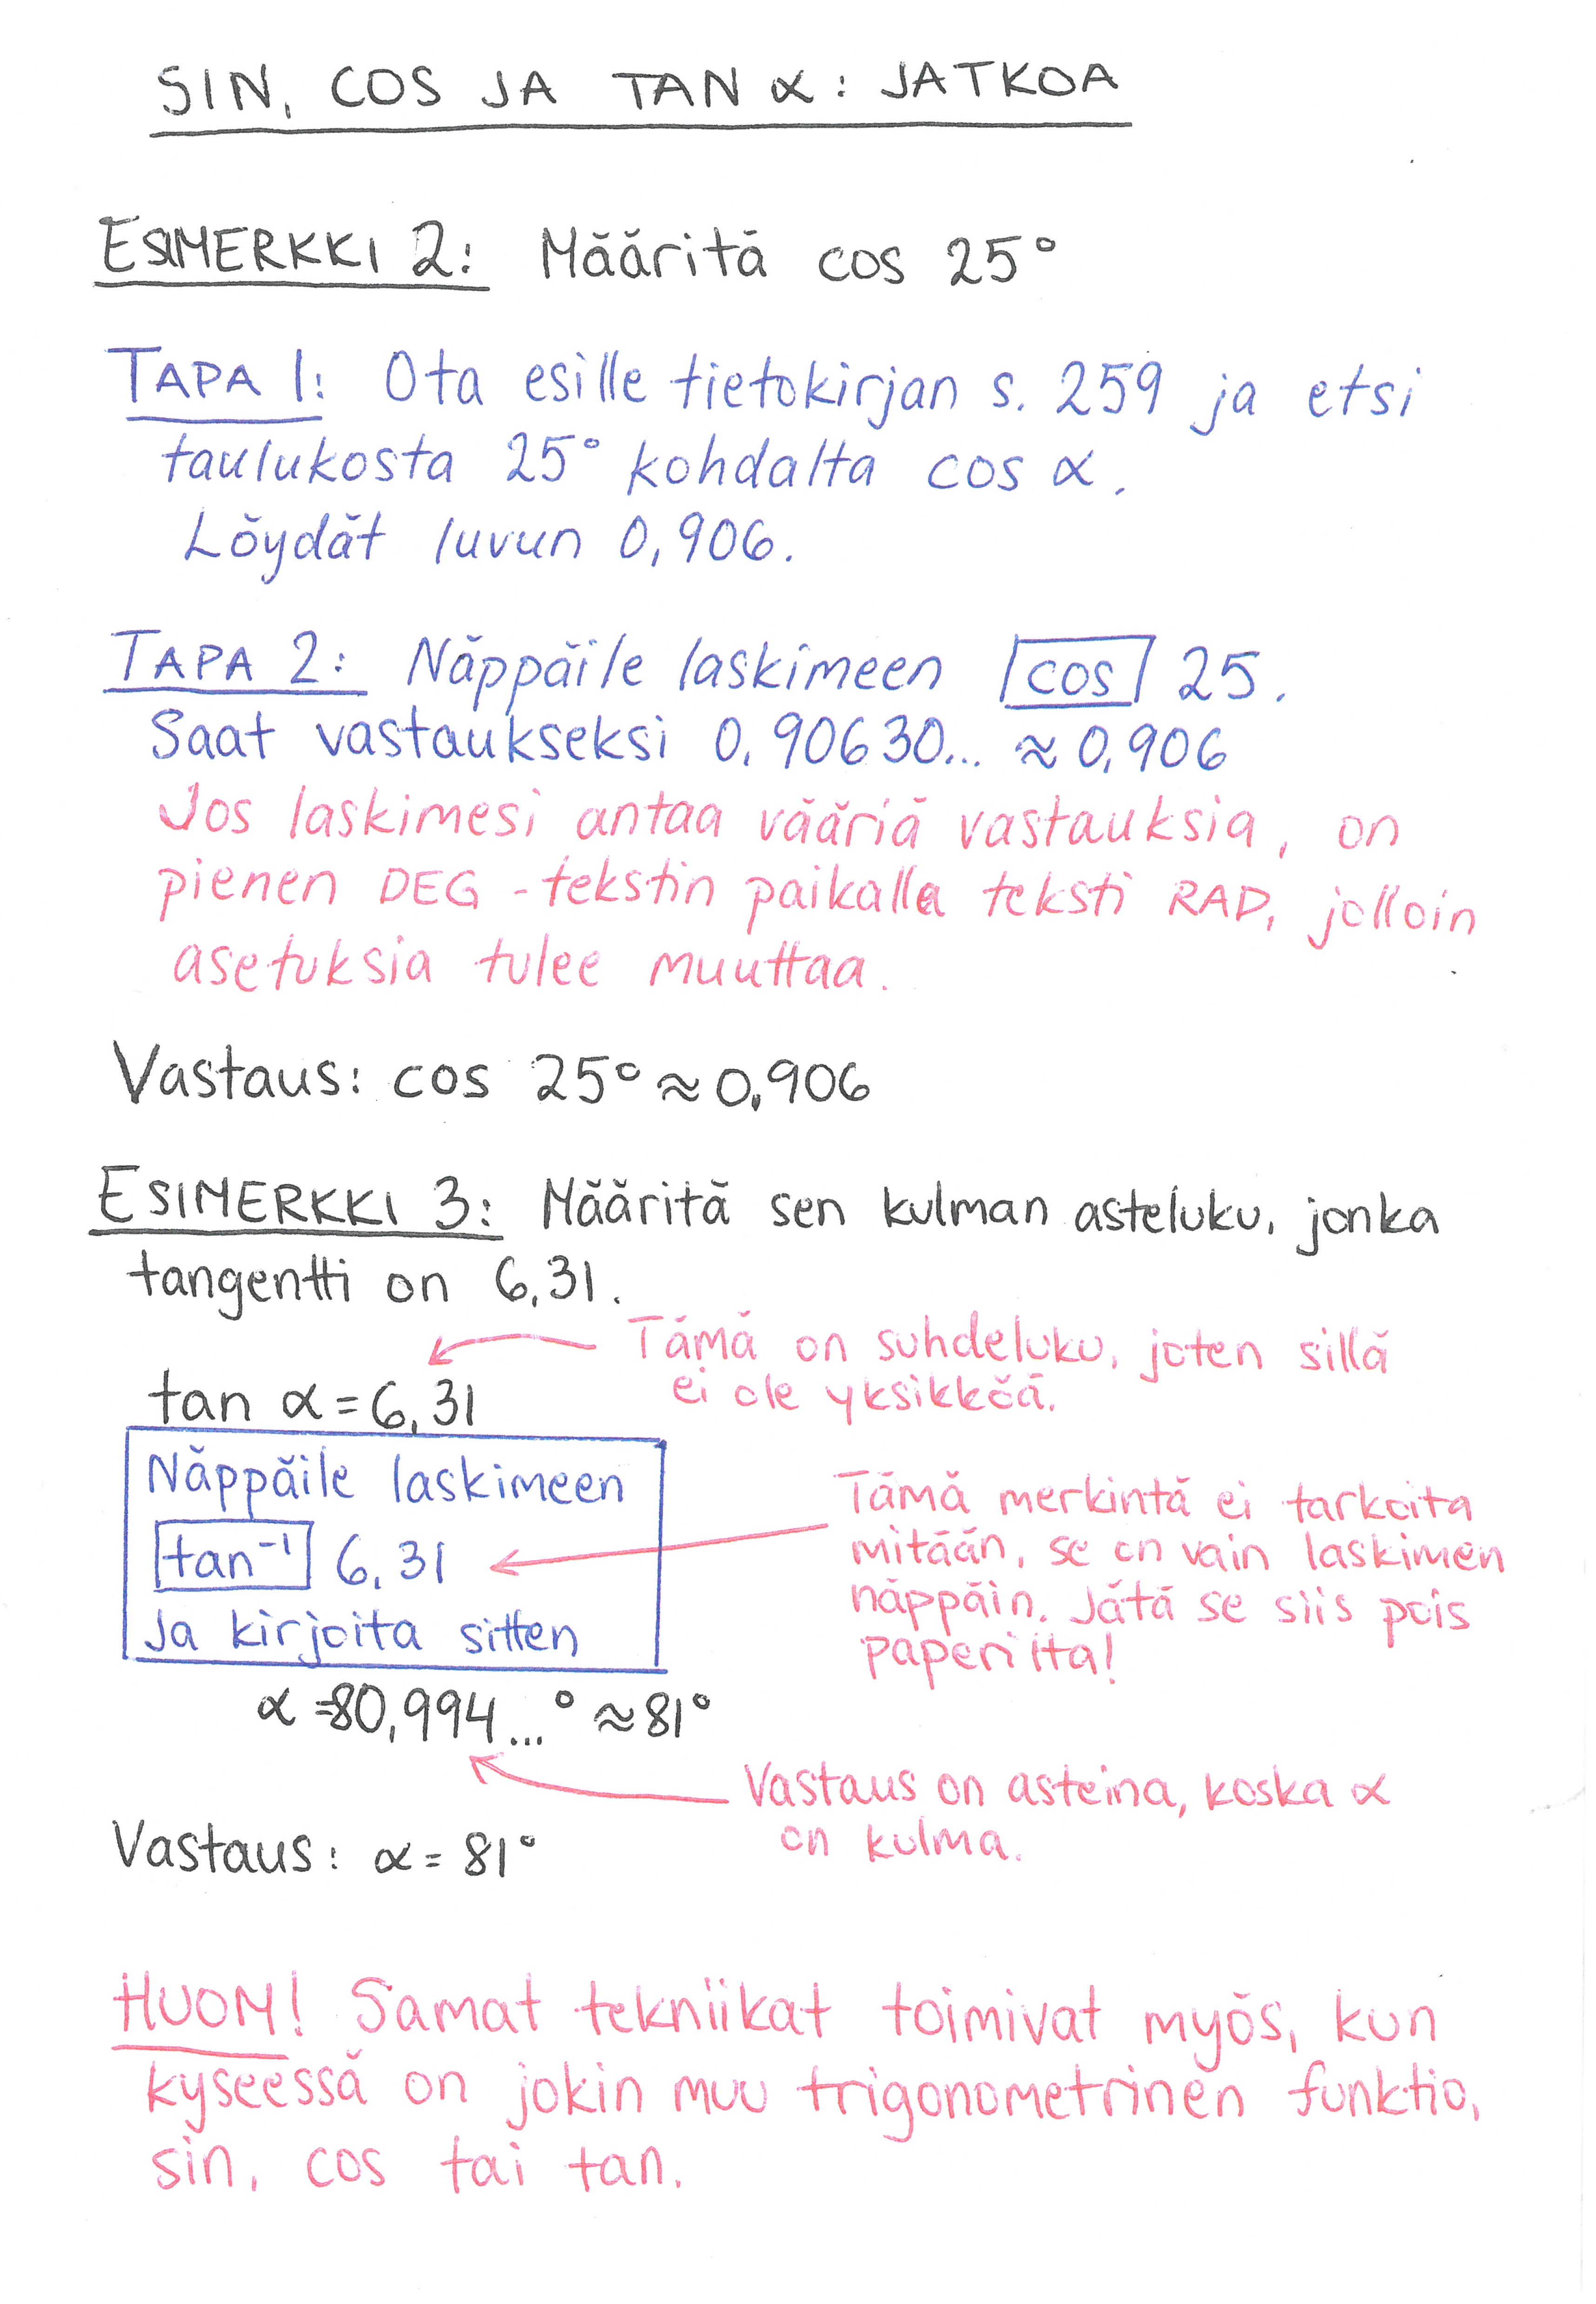 SIN, COS JA TAN α: JATKOA
ESIMERKKI 2: Määritä cos 25°
TAPA 1: Ota esille tietokirjan s. 259 ja etsi
taulukosta 25° kohdalta cos α.
Löydät luvun 0,906.
TAPA 2: Näppäile laskimeen cos 25.
Saat vastaukseksi 0,90630... ≈ 0,906
Jos laskimesi antaa vääriä vastauksia, on
pienen DEG -tekstin paikalla teksti RAD, jolloin
asetuksia tulee muuttaa.
Vastaus: cos 25° ≈ 0,906
ESIMERKKI 3: Määritä sen kulman asteluku, jonka
tangentti on 6,31.
Tämä on suhdeluku, joten sillä
ei ole yksikköä.
tan α = 6,31
Näppäile laskimeen
tan⁻¹ 6,31
Ja kirjoita sitten
Tämä merkintä ei tarkoita
mitään, se on vain laskimen
näppäin. Jätä se siis pois
paperilta!
α = 80,994...° ≈ 81°
Vastaus on asteina, koska α
on kulma.
Vastaus: α = 81°
HUOM! Samat tekniikat toimivat myös, kun
kyseessä on jokin muu trigonometrinen funktio,
sin, cos tai tan.